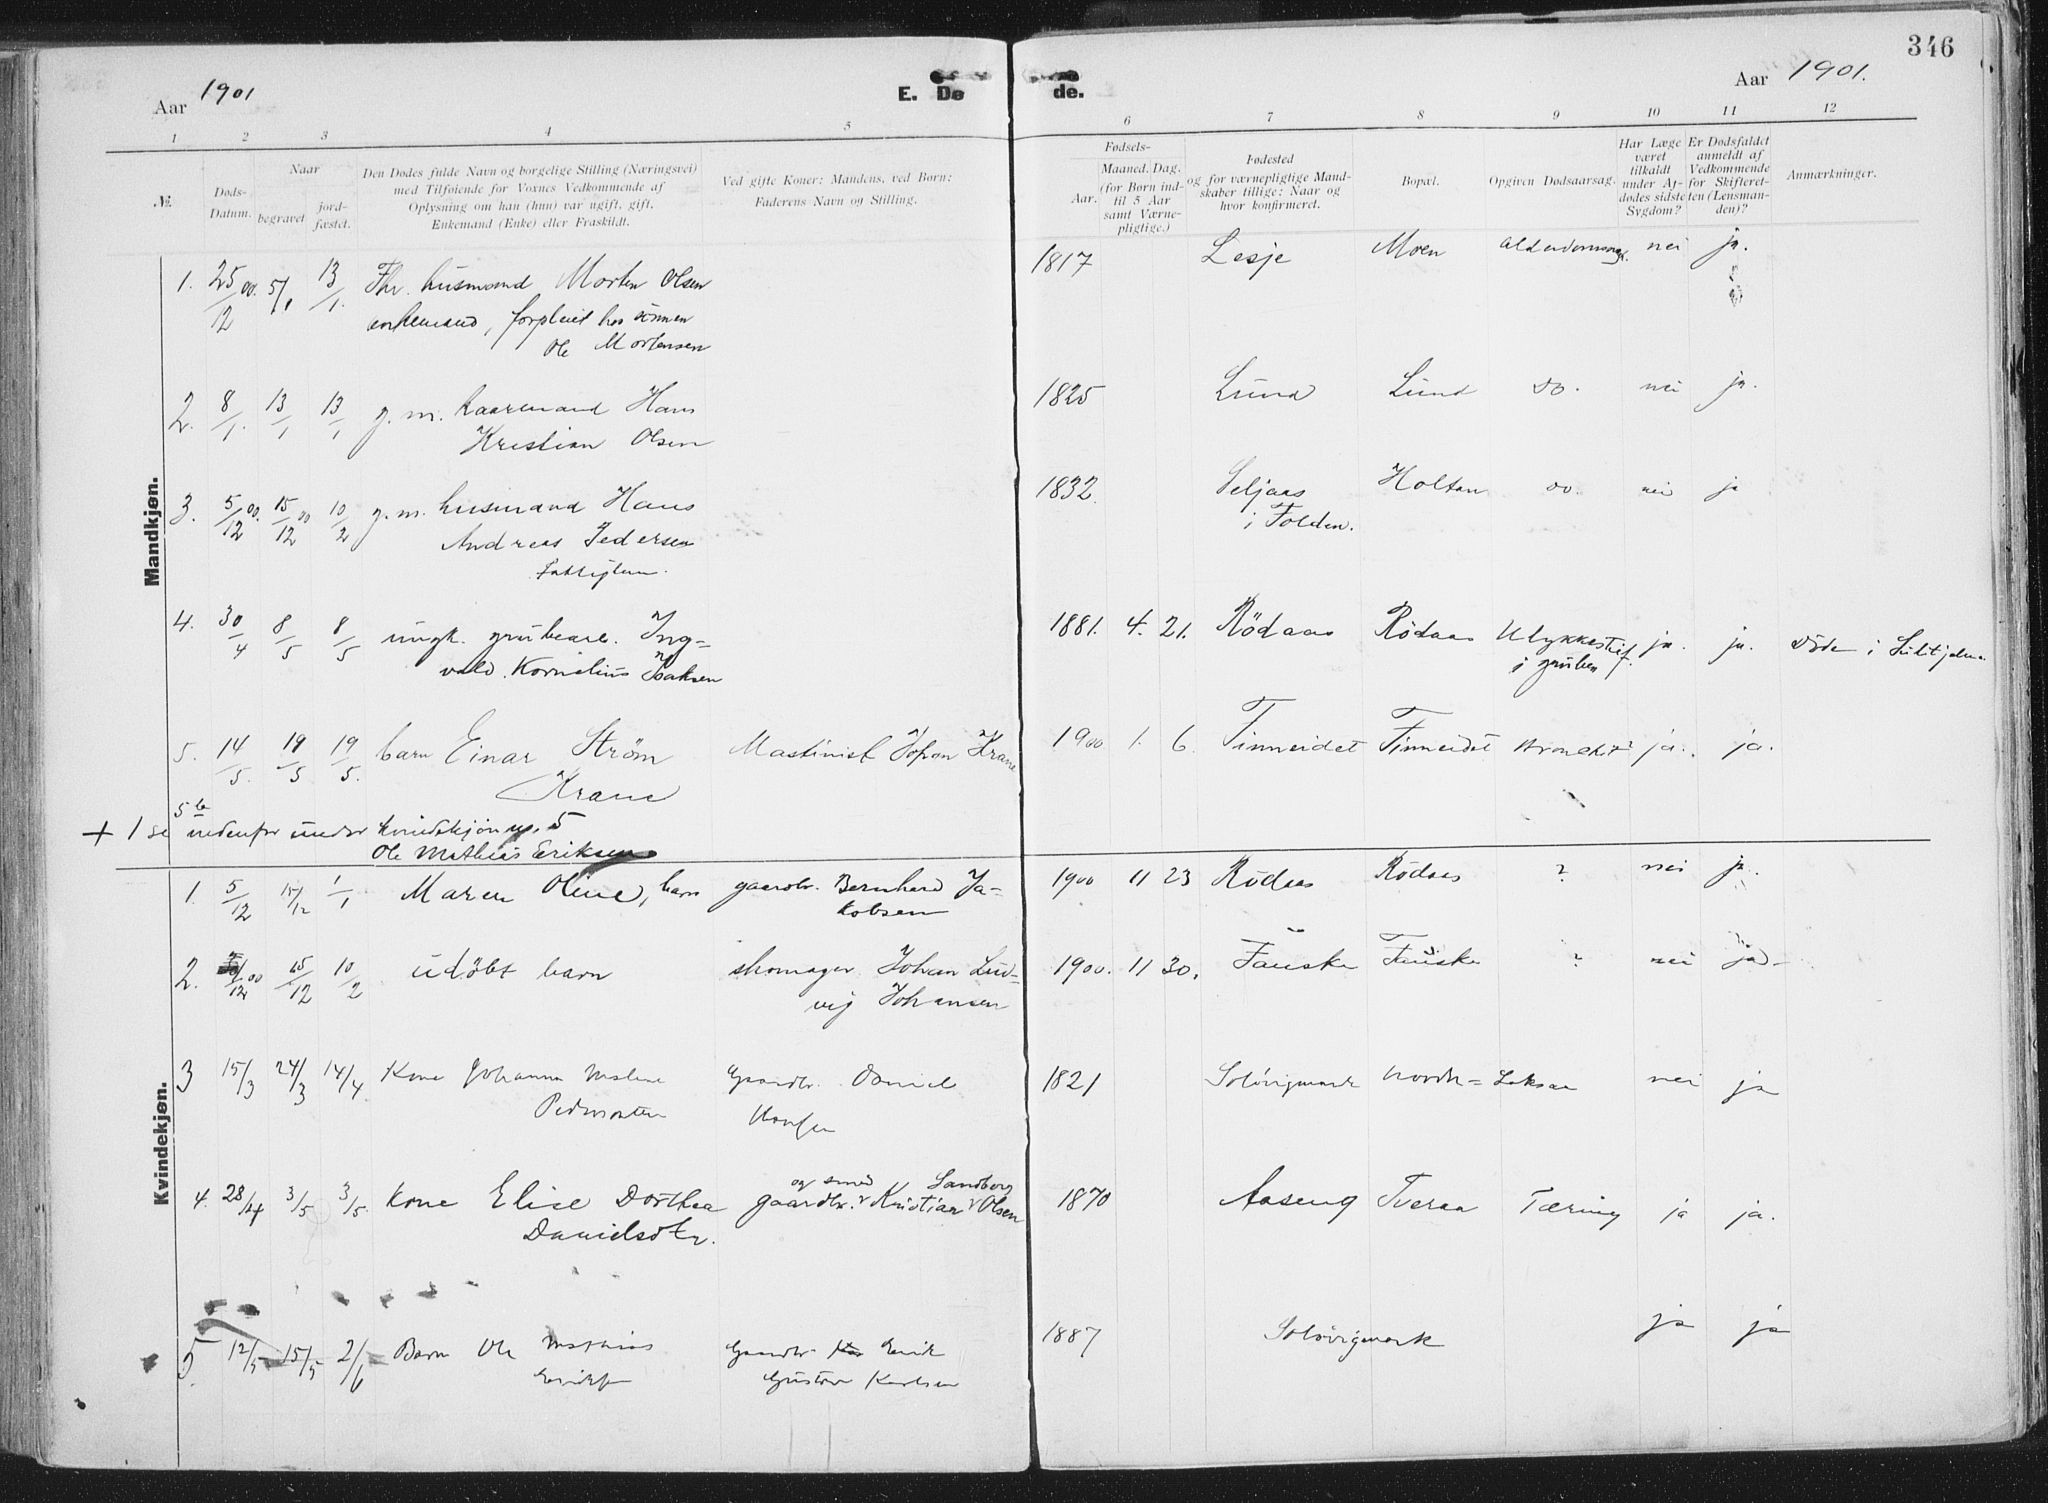 346
Aar 1901
E. Dø de.
Aar 1901.
1 2 3 4 5 6 7 8 9 10 11 12
№.
Døds-Datum.
Naar
begravet
jord-fæstet.
Den Dødes fulde Navn og borgelige Stilling (Næringsvei)
med Tilføiende for Voxnes Vedkommende af
Oplysning om han (hun) var ugift, gift,
Enkemand (Enke) eller Fraskildt.
Ved gifte Koner: Mandens, ved Børn:
Faderens Navn og Stilling.
Fødsels-
Aar.
Maaned. Dag.
(for Børn ind-
til 5 Aar
samt Værne-
pligtige.)
Fødested
og for værnepligtige Mand-
skaber tillige: Naar og
hvor konfirmeret.
Bopæl.
Opgiven Dødsaarsag.
Har Læge
været
tilkaldt
under Af-
dødes sidste
Sygdom?
Er Dødsfaldet
anmeldt af
Vedkommende
for Skifteret-
ten (Lensman-
den)?
Anmærkninger.
Mandkjøn.
1. 25/12 00. 5/1 13/1. Fhr. husmand Morten Olsen 1817 Lesje Moen nei ja.
enkemand, forpleiet hos sönnen
Ole Mortensen
2. 8/1. 13/1 13/1 g. m. kaarmand Hans 1825 Lund Lund do. nei ja.
Kristian Olsen
3. 5/12 00. 15/12 00 10/2 g. m. husmand Hans 1832. Seljaas Holtan do. nei ja
Andreas Pedersen i Folden.
4. 30/4 8/5 8/5 ungk. grubearb. Ing- 1881. 4. 21. Rödaas Rödaas Ulykkestilf. ja. ja. Döde i Sulitjelma
vald Kornelius Isaksen i gruben
5. 14/5. 19/5 19/5. barn Einar Ström Maskinist Johan Krane 1900. 1. 6. Finneidet Finneidet Bronchit ja. ja.
Krane
5b
+ 1 se nedenfor under kvindekjön no. 5
Ole Mathias Eriksen
Kvindekjøn.
1. 5/12 15/12 1/1 Maren Oline, barn gaardbr. Bernhard Ja- 1900 11 23 Rödaas Rödaas ? nei ja.
kobsen
2. 00 15/12 10/2 udöbt barn skomager Johan Lud- 1900. 11 30. Fauske Fauske ? nei ja
vig Johansen
3 15/3 24/3 14/4 Kone Johanna Gaardbr. Daniel 1821 nei ja
og smed Sandberg
4. 28/4 3/5 3/5. Kone Elise Dorthea gaardbr. Kristian Olsen 1870 Aaseng Tveraa Tæring ja ja.
Danielsdtr.
5. 12/5 15/5 2/6 Barn Ole Mathias Gaardbr. Erik 1887 ja ja
Gustav Karlsen